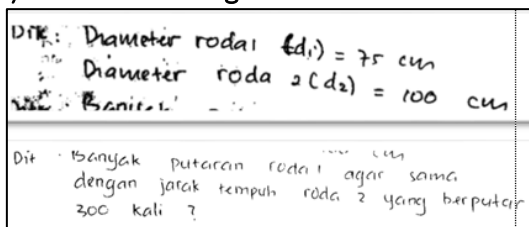 Dik: Diameter roda 1 (d₁) = 75 cm
Diameter roda 2 (d₂) = 100 cm
Dit Banyak putaran roda 1 agar sama
dengan jarak tempuh roda 2 yang berputar
300 kali ?